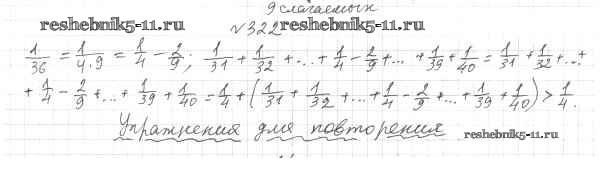 9 слагаемых
reshebnik5-11.ru №322 reshebnik5-11.ru
1/36 = 1/4·9 = 1/4 - 2/9; 1/31 + 1/32 + ... + 1/4 - 2/9 + ... + 1/39 + 1/40 = 1/31 + 1/32 + ... +
+ 1/4 - 2/9 + ... + 1/39 + 1/40 = 1/4 + (1/31 + 1/32 + ... + 1/4 - 2/9 + ... + 1/39 + 1/40) > 1/4.
Упражнения для повторения reshebnik5-11.ru